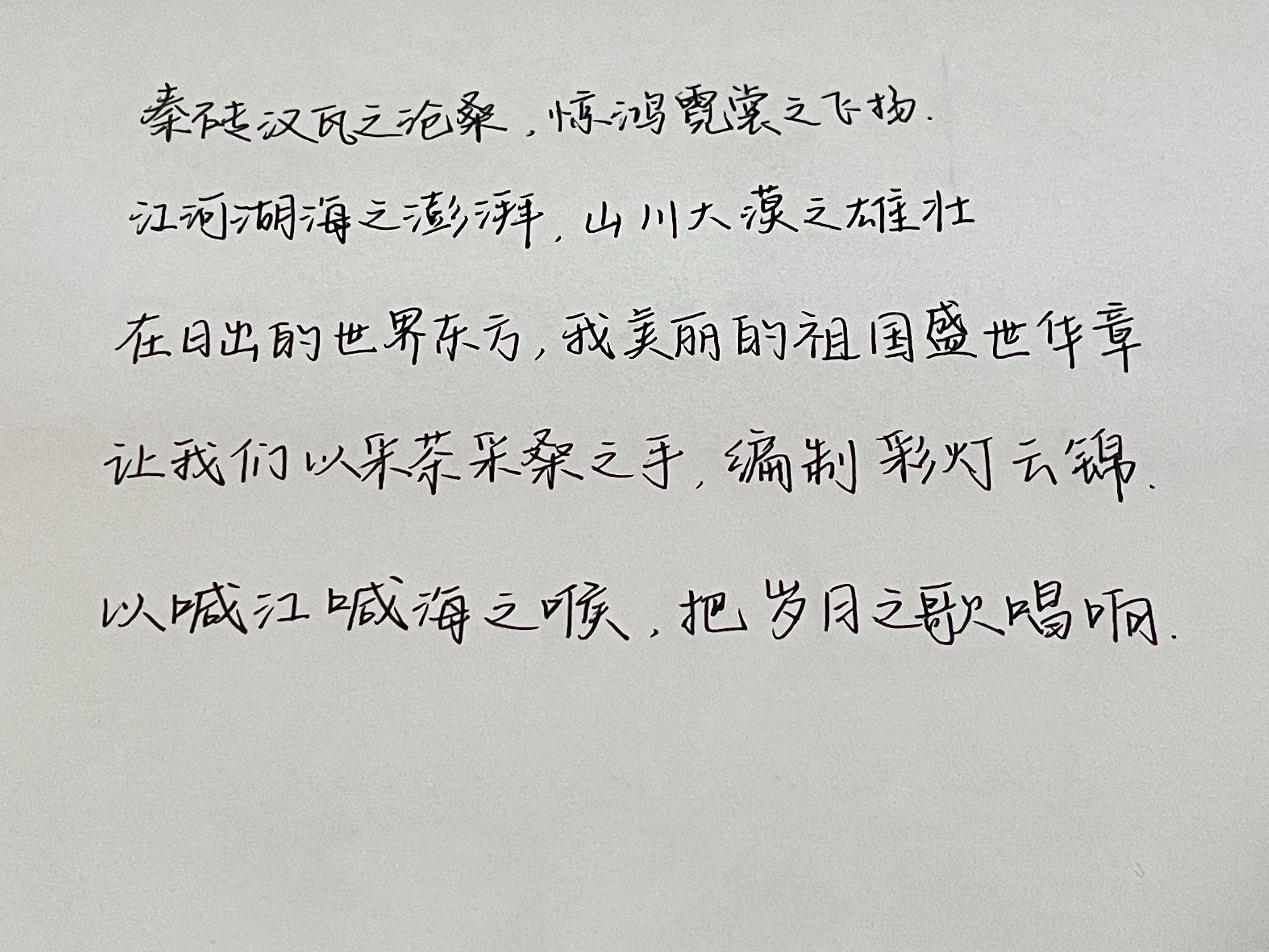 秦砖汉瓦之沧桑,惊鸿霓裳之飞扬.
江河湖海之澎湃,山川大漠之雄壮
在日出的世界东方,我美丽的祖国盛世华章
让我们以采茶采桑之手,编制彩灯云锦.
以喊江喊海之喉,把岁月之歌唱响.